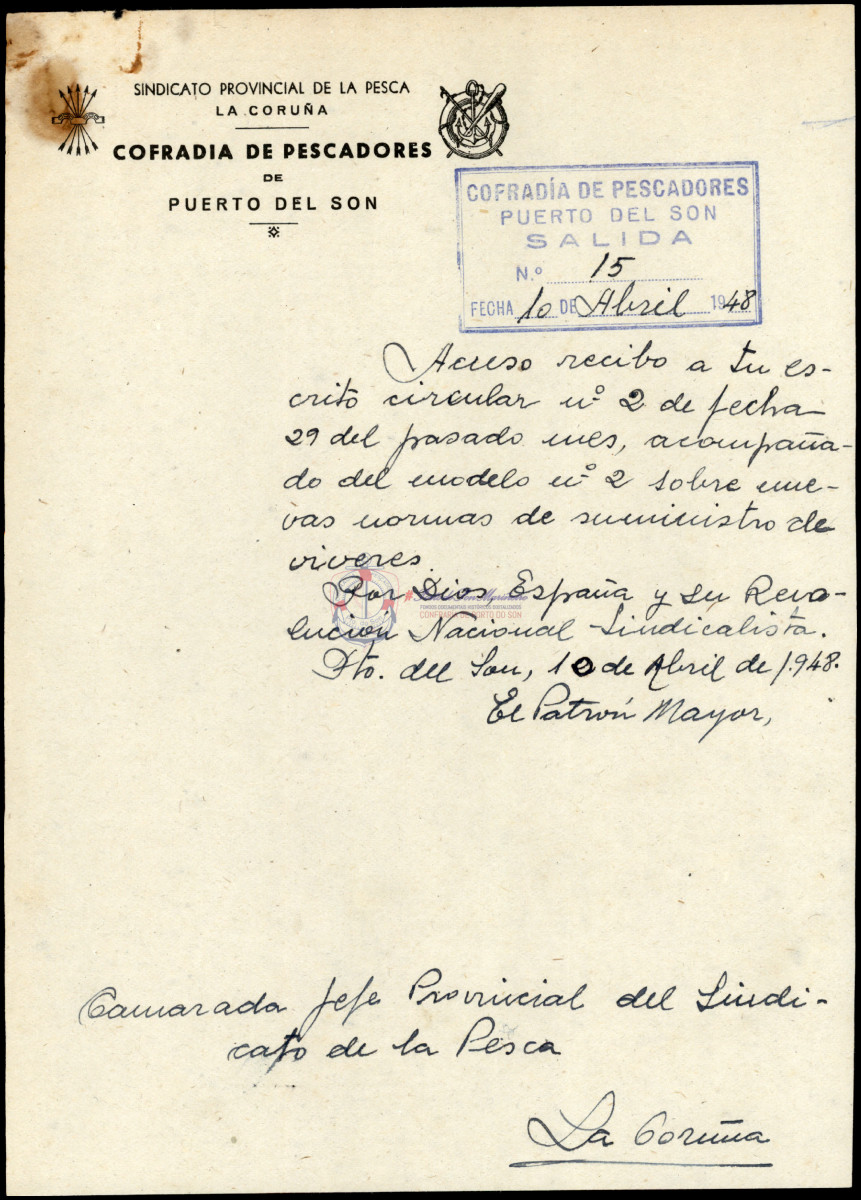 SINDICATO PROVINCIAL DE LA PESCA
LA CORUÑA
COFRADIA DE PESCADORES
DE
PUERTO DEL SON
COFRADÍA DE PESCADORES
PUERTO DEL SON
SALIDA
N.º 15
FECHA 10 DE Abril 1948
Acuso recibo a tu es-
crito circular nº 2 de fecha
29 del pasado mes, acompaña-
do del modelo nº 2 sobre nue-
vas normas de suministro de
viveres.
Por Dios España y su Revo-
lución Nacional-Sindicalista.
FONDOS DOCUMENTAIS HISTÓRICOS DIXITALIZADOS
CONFRARÍA DE PORTO DO SON
Pto. del Son, 10 de Abril de 1.948.
El Patrón Mayor,
Camarada Jefe Provincial del Sindi-
cato de la Pesca
La Coruña